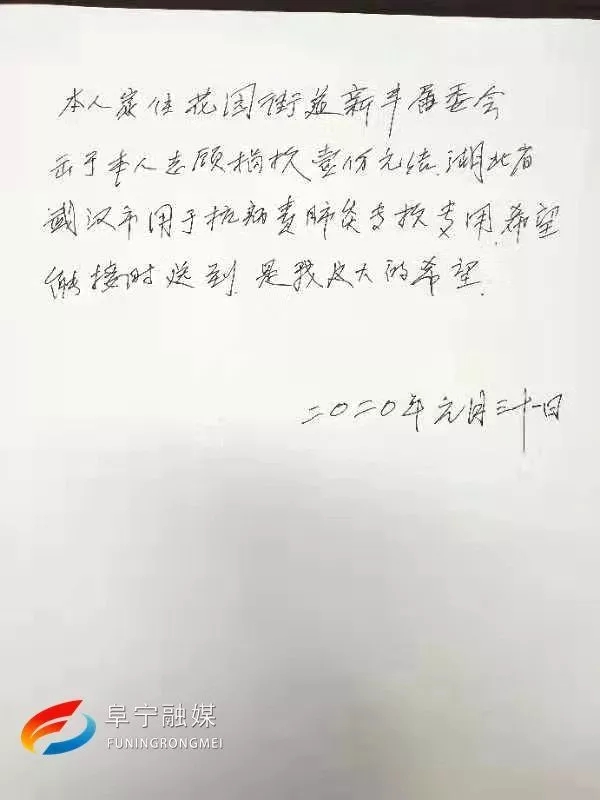 本人家住花园街道新丰居委会
出于本人志愿捐款壹仟元给湖北省
武汉市用于抗病毒肺炎专款专用.希望
能按时送到.是我最大的希望.
二〇二〇年元月三十一日
阜宁融媒
FUNINGRONGMEI